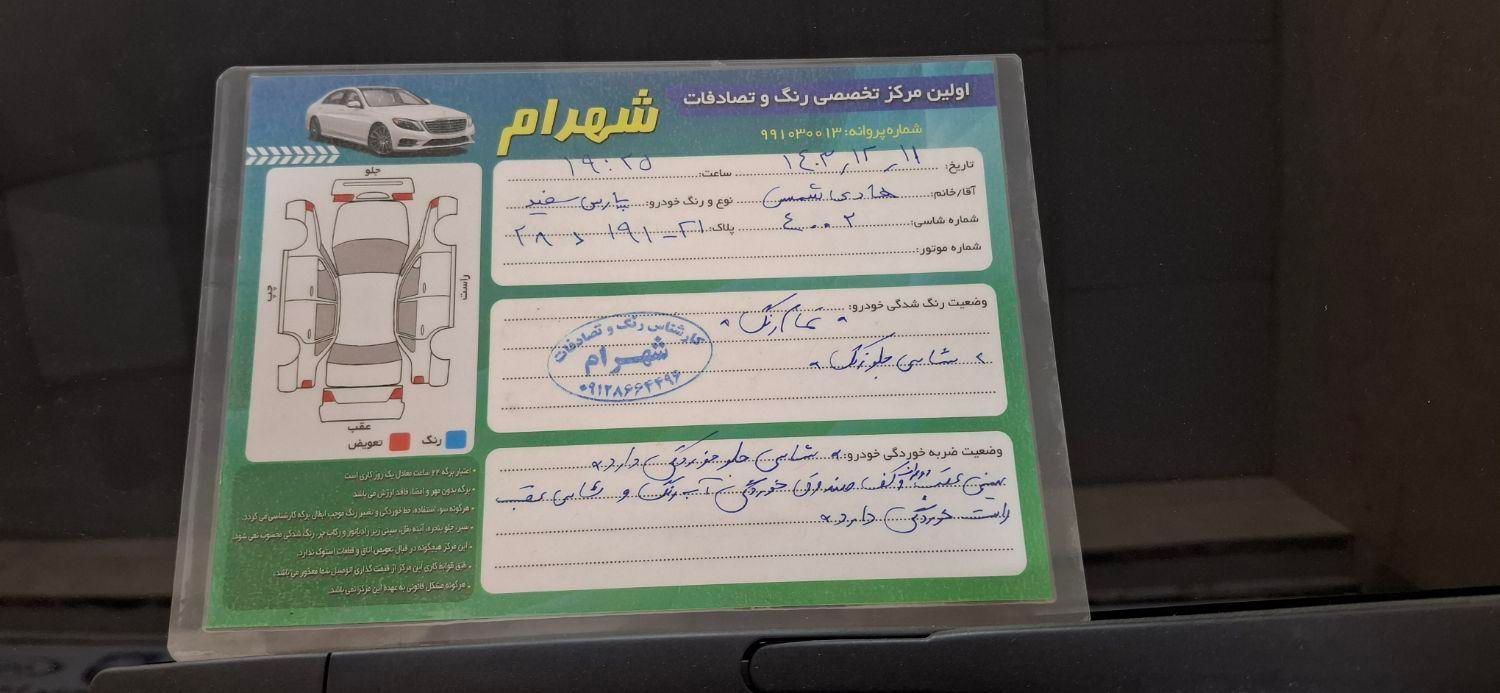 اولین مرکز تخصصی رنگ و تصادفات
شهرام
شماره پروانه: ۹۹۱۰۳۰۰۱۳
تاریخ: ۱۴۰۲/۱۲/۱۱ ساعت: ۱۹:۲۵
آقا/خانم: هادی شمس نوع و رنگ خودرو: پارس سفید
شماره شاسی: ۴۰۰۰۲ پلاک: ۲۱ - ۱۹۱ د ۲۸
شماره موتور:
وضعیت رنگ شدگی خودرو:
تمام رنگ
شاسی جلو رنگ
کارشناس رنگ و تصادفات
شهرام
۰۹۱۲۸۶۶۴۴۹۶
وضعیت ضربه خوردگی خودرو: شاسی جلو خوردگی دارد
سینی عقب و کف صندوق خوردگی آب رنگ و شاسی عقب
راست خوردگی دارد
جلو
راست
چپ
عقب
رنگ تعویض
• اعتبار برگه ۲۴ ساعت معادل یک روز کاری است
• برگه بدون مهر و امضاء فاقد ارزش می باشد
• هرگونه سوء استفاده، خط خوردگی و تغییر رنگ موجب ابطال برگه کارشناسی می گردد.
• سپر، جلو پنجره، آئینه بغل، سینی زیر رادیاتور و رکاب جز رنگ شدگی محسوب نمی شود.
• این مرکز هیچگونه در قبال تعویض اتاق و قطعات استوک ندارد.
• طبق ضوابط کاری این مرکز از قیمت گذاری اتومبیل شما معذور می باشد.
• هرگونه مشکل قانونی به عهده این مرکز نمی باشد.